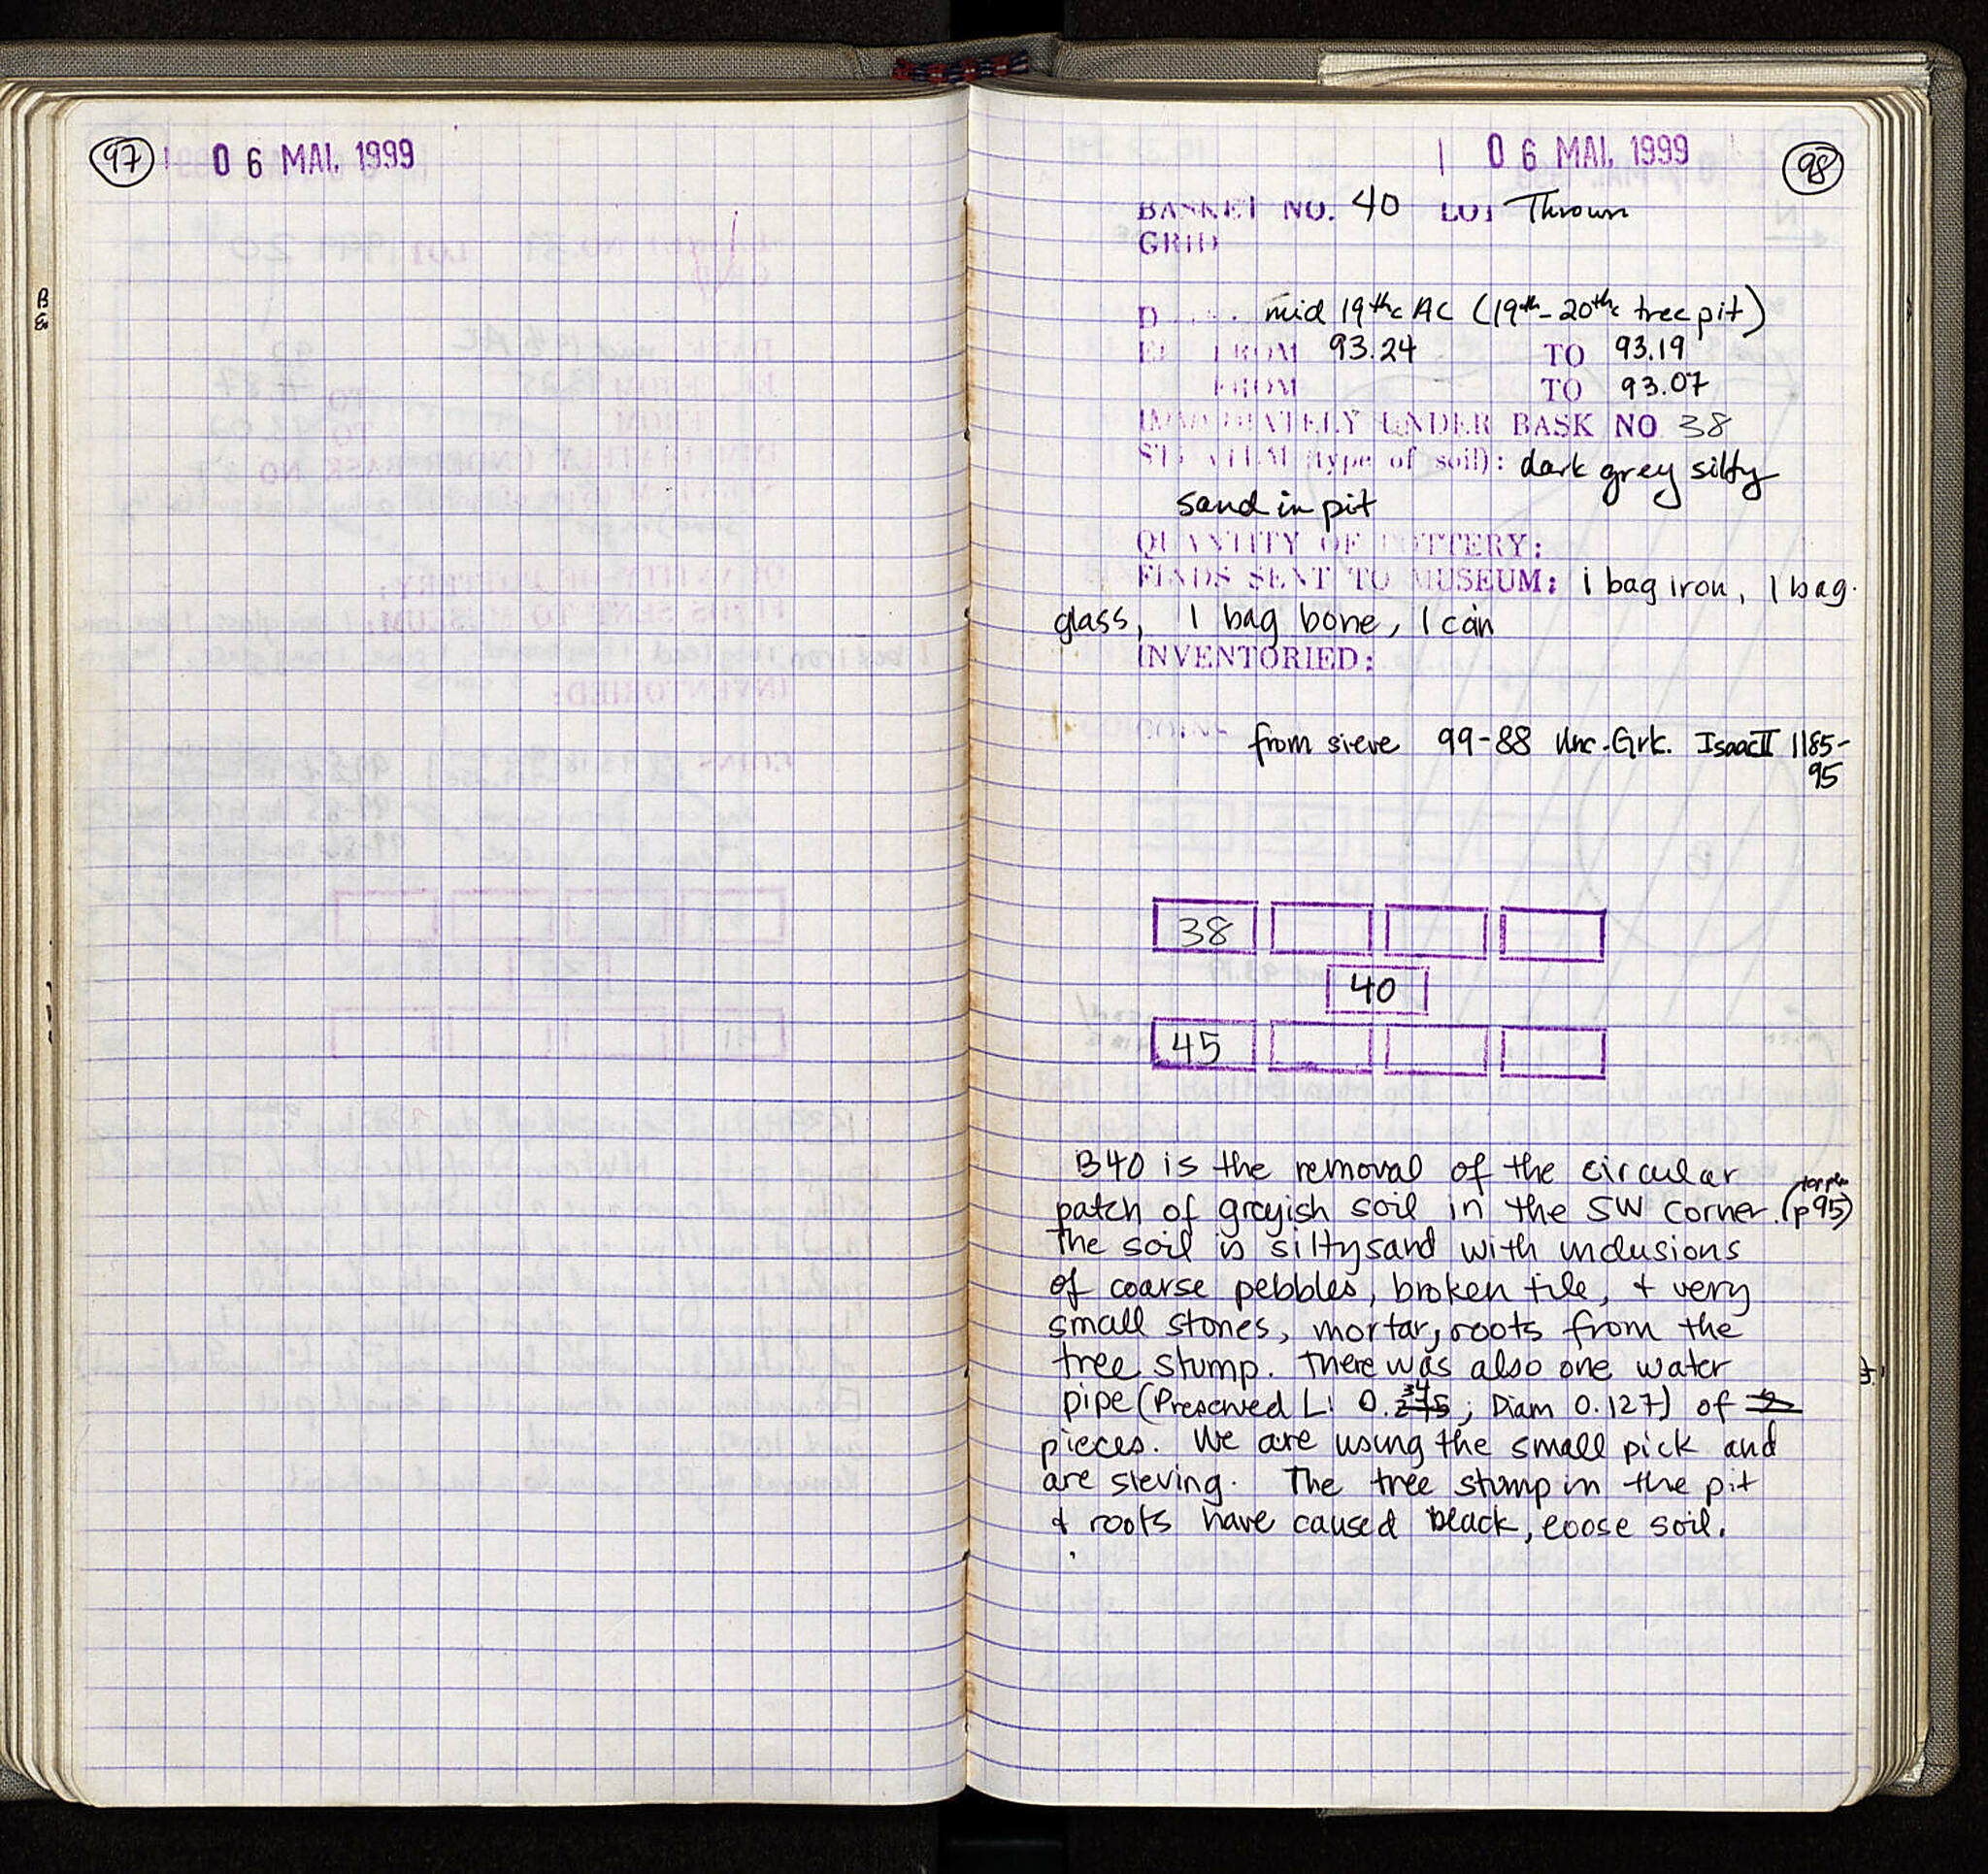 97
06 MAI. 1999
06 MAI. 1999
98
BASKET NO. 40 LOT Thrown
GRID
D mid 19th c AC (19th-20th c tree pit)
EL FROM 93.24 TO 93.19
FROM TO 93.07
IMMEDIATELY UNDER BASK NO 38
STRATUM (type of soil): dark grey silty
sand in pit
QUANTITY OF POTTERY:
FINDS SENT TO MUSEUM: 1 bag iron, 1 bag
glass, 1 bag bone, 1 coin
INVENTORIED:
from sieve 99-88 Unc. Grk. Isaac II 1185-
95
38
40
45
B40 is the removal of the circular
patch of greyish soil in the SW corner. (top plan p95)
The soil is silty sand with inclusions
of coarse pebbles, broken tile, + very
small stones, mortar, roots from the
tree stump. There was also one water
pipe (Preserved L: 0.34; Diam 0.127) of
pieces. We are using the small pick and
are sieving. The tree stump in the pit
+ roots have caused black, loose soil.